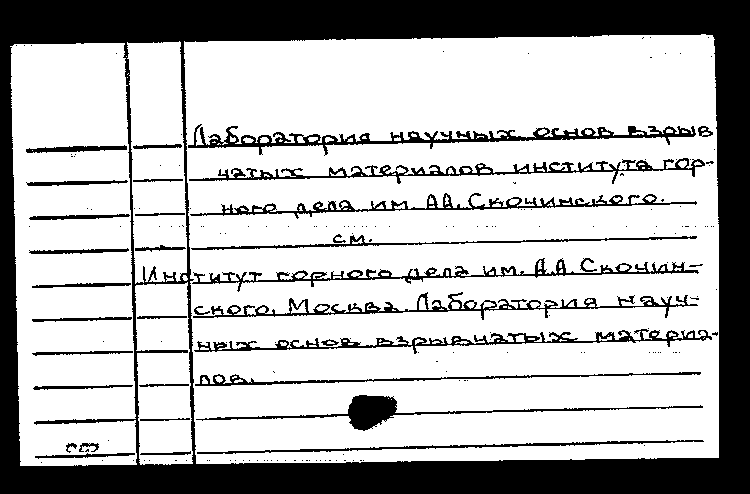 Лаборатория научных основ взрыв
чатых материалов института гор-
ного дела им. А.А. Скочинского.
см.
Институт горного дела им. А.А. Скочин-
ского, Москва. Лаборатория науч-
ных основ взрывчатых материа-
лов.